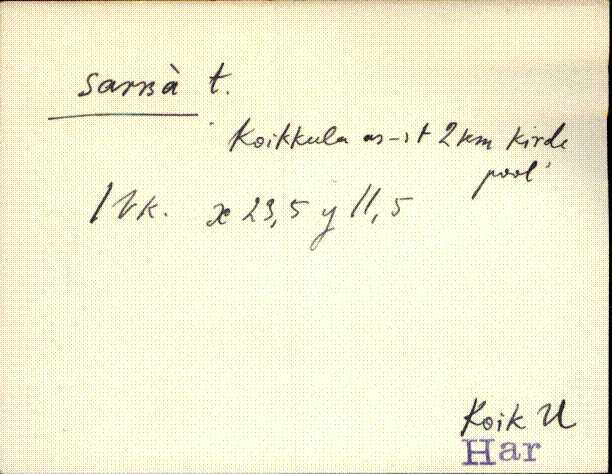 sarsà t.
Koikkula as-st 2 km kirde
pool
1 Vk. x 23,5 y 11,5
Koik U
Har